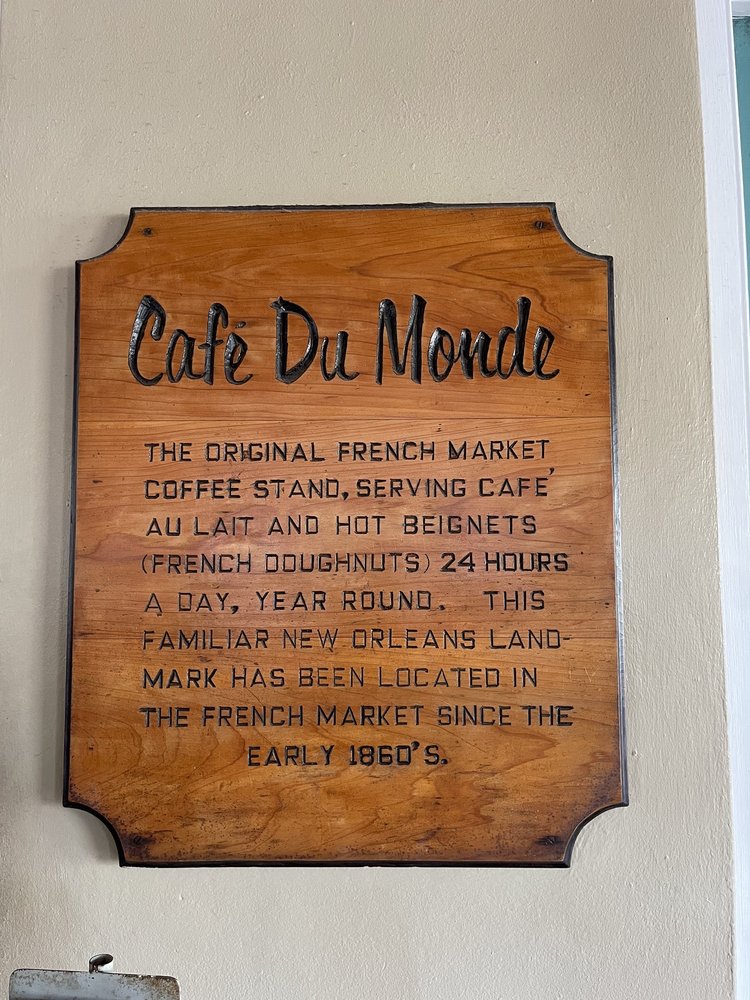 Café Du Monde
THE ORIGINAL FRENCH MARKET
COFFEE STAND, SERVING CAFE'
AU LAIT AND HOT BEIGNETS
(FRENCH DOUGHNUTS) 24 HOURS
A DAY, YEAR ROUND. THIS
FAMILIAR NEW ORLEANS LAND-
MARK HAS BEEN LOCATED IN
THE FRENCH MARKET SINCE THE
EARLY 1860'S.